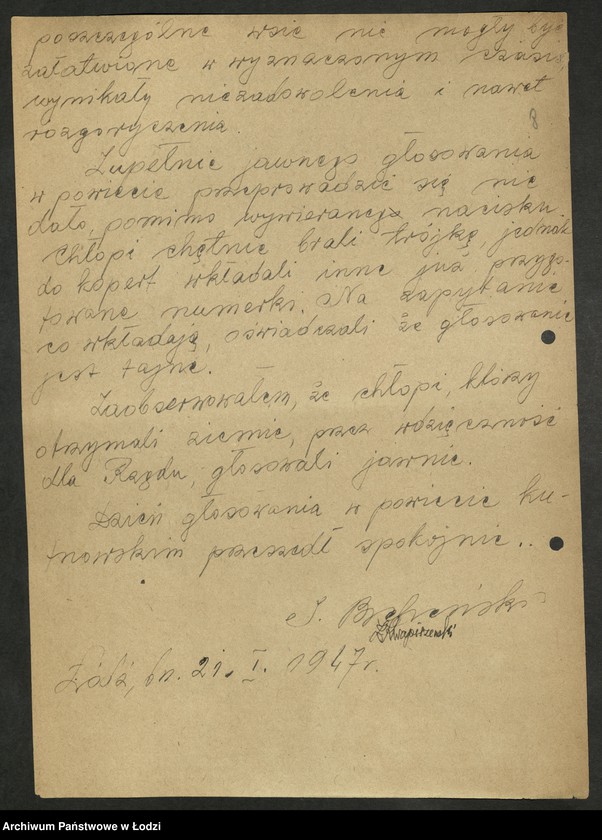 poszczególne wsie nie mogły być
załatwione w wyznaczonym czasie,
wynikały niezadowolenia i nawet
rozgoryczenia.
8
Zupełnie jawnego głosowania
w powiecie przeprowadzić się nie
dało, pomimo wywieranego nacisku.
Chłopi chętnie brali trójkę, jednak
do kopert wkładali inne już przygo-
towane numerki. Na zapytanie
co wkładają, oświadczali że głosowanie
jest tajne.
Zaobserwowałem, że chłopi, którzy
otrzymali ziemie, przez wdzięczność
dla Rządu, głosowali jawnie.
Dzień głosowania w powiecie ku-
tnowskim przeszedł spokojnie..
Łódź, dn. 21. I. 1947 r.
Archiwum Państwowe w Łodzi